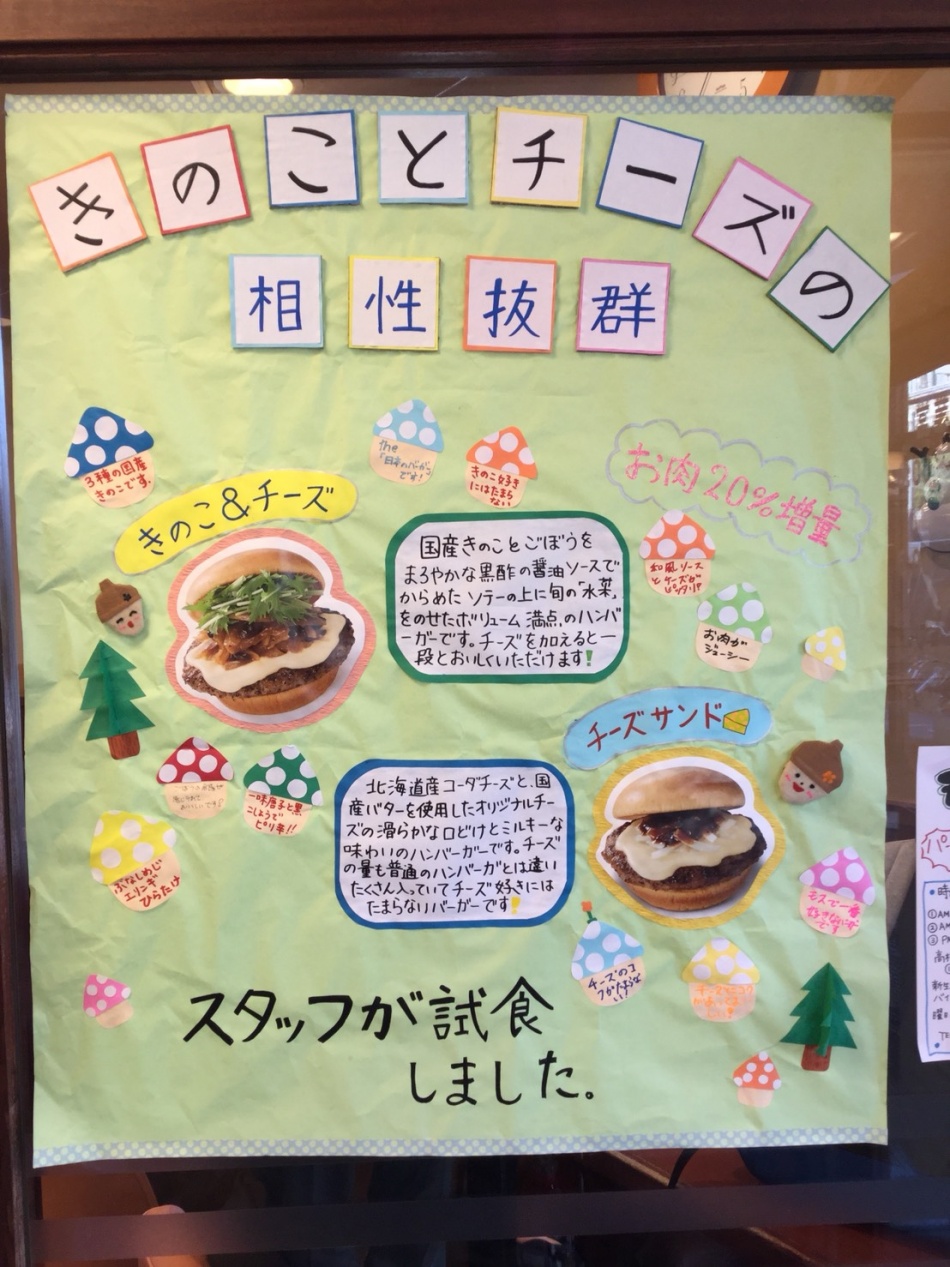 きのことチーズの
相性抜群
3種の国産
きのこです。
the
「日本のバーガー」
です!
きのこ好き
にはたまら
ない
お肉20%増量
きのこ&チーズ
国産きのことごぼうを
まろやかな黒酢の醤油ソースで
からめたソテーの上に旬の「水菜」
をのせたボリューム満点のハンバ
ーガーです。チーズを加えると一
段とおいしくいただけます!
和風ソース
とチーズが
ピッタリ!?
お肉が
ジューシー
チーズサンド
一味唐子と黒
こしょうで
ピリ辛!!
ぶなしめじ
エリンギ
ひらたけ
北海道産ゴーダチーズと、国
産バターを使用したオリジナルチー
ズの滑らかな口どけとミルキーな
味わいのハンバーガーです。チーズ
の量も普通のハンバーガーとは違い
たくさん入っていてチーズ好きには
たまらないバーガーです!
モスで一番
好きなバーガー
です
チーズのコ
クがたまらな
い!
スタッフが試食
しました。